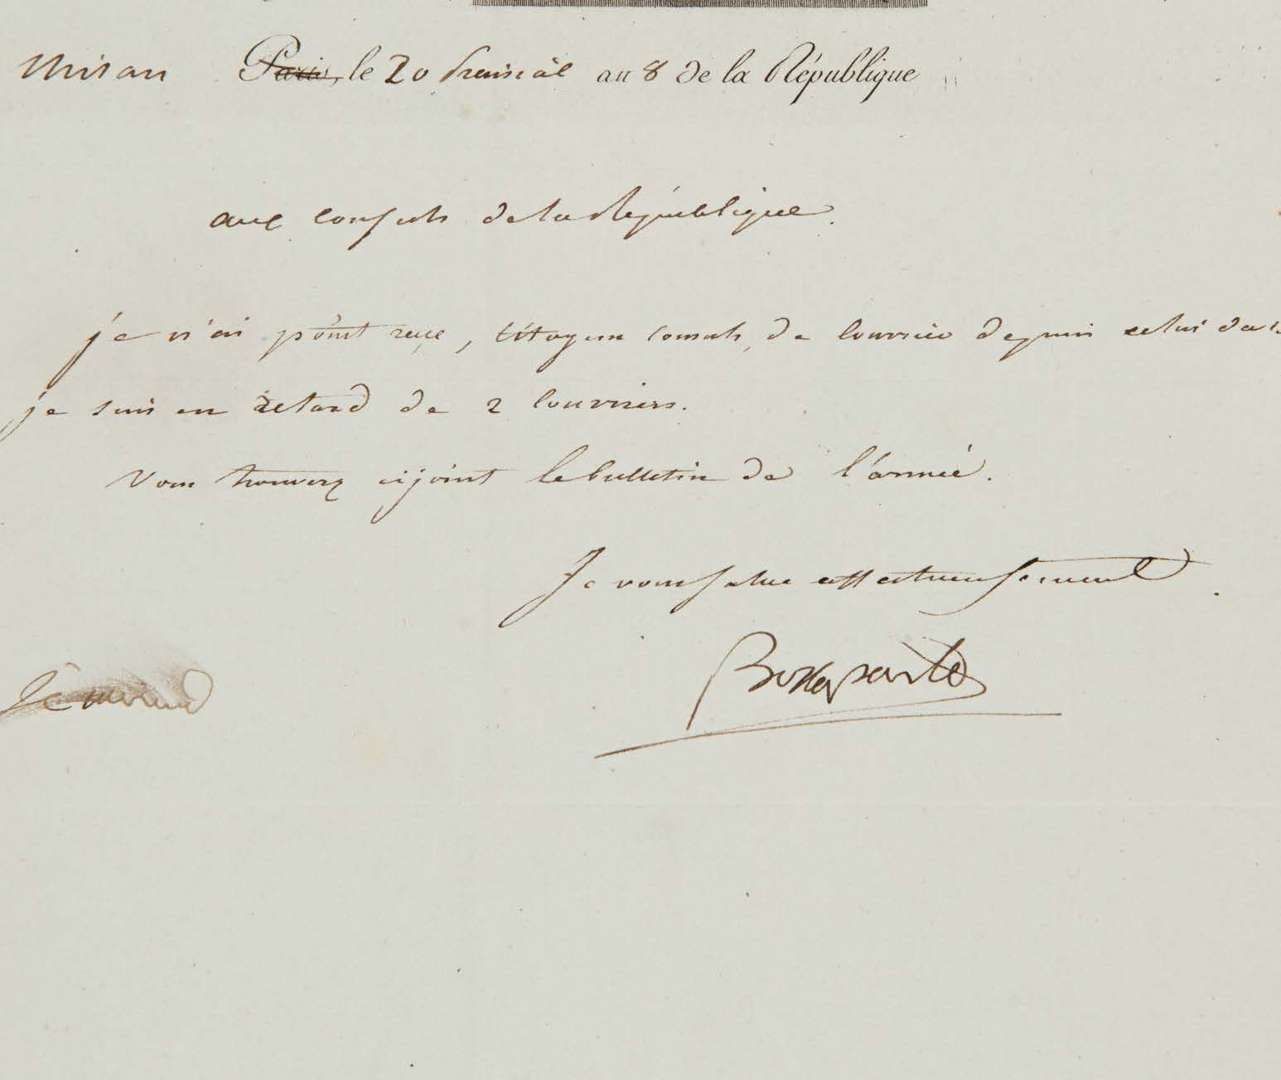 Milan Paris, le 20 Prairial an 8 de la République
aux consuls de la République.
je n'ai point reçu, citoyens consuls, de courrier depuis celui du
je suis en retard de 2 courriers.
Vous trouverez cijoint le bulletin de l'armée.
Je vous salue affectueusement.
Bonaparte